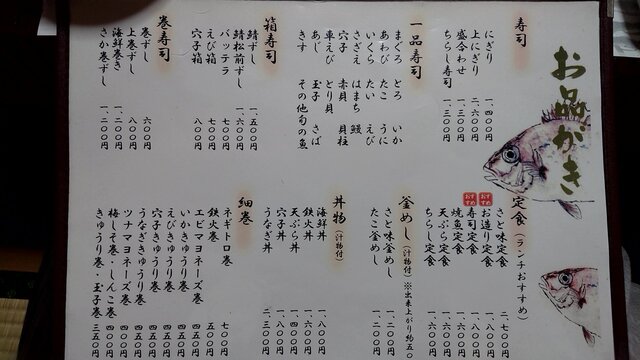 お品がき
寿司
にぎり 一、四〇〇円
上にぎり 二、六〇〇円
盛合わせ 一、三〇〇円
ちらし寿司 一、三〇〇円
一品寿司
まぐろ とろ いか
あわび たこ うに
いくら たい えび
さざえ はまち 鰻
穴子 赤貝 貝柱
車えび とり貝
あじ 玉子 さば
きす その他旬の魚
箱寿司
鯖ずし 一、五〇〇円
鯖松前ずし 一、六〇〇円
バッテラ 七〇〇円
えび箱 八〇〇円
穴子箱 八〇〇円
巻寿司
巻ずし 六〇〇円
上巻ずし 八〇〇円
海鮮巻き 一、二〇〇円
さか巻ずし 一、二〇〇円
定食(ランチおすすめ)
さと味定食 二、七〇〇円
おすすめ お造り定食 一、八〇〇円
おすすめ 寿司定食 一、八〇〇円
焼魚定食
天ぷら定食
ちらし定食 一、六〇〇円
釜めし(汁物付)※出来上がり約五〇
さと味釜めし 一、二〇〇円
たこ釜めし 一、二〇〇円
丼物(汁物付)
海鮮丼 一、八〇〇円
鉄火丼
天ぷら丼
穴子丼
うなぎ丼 一、三〇〇円
細巻
ネギトロ巻 七〇〇円
鉄火巻 五〇〇円
エビマヨネーズ巻
いかきゅうり巻
えびきゅうり巻
穴子きゅうり巻
うなぎきゅうり巻
ツナマヨネーズ巻
梅しそ巻・しんこ巻
きゅうり巻・玉子巻 三五〇円